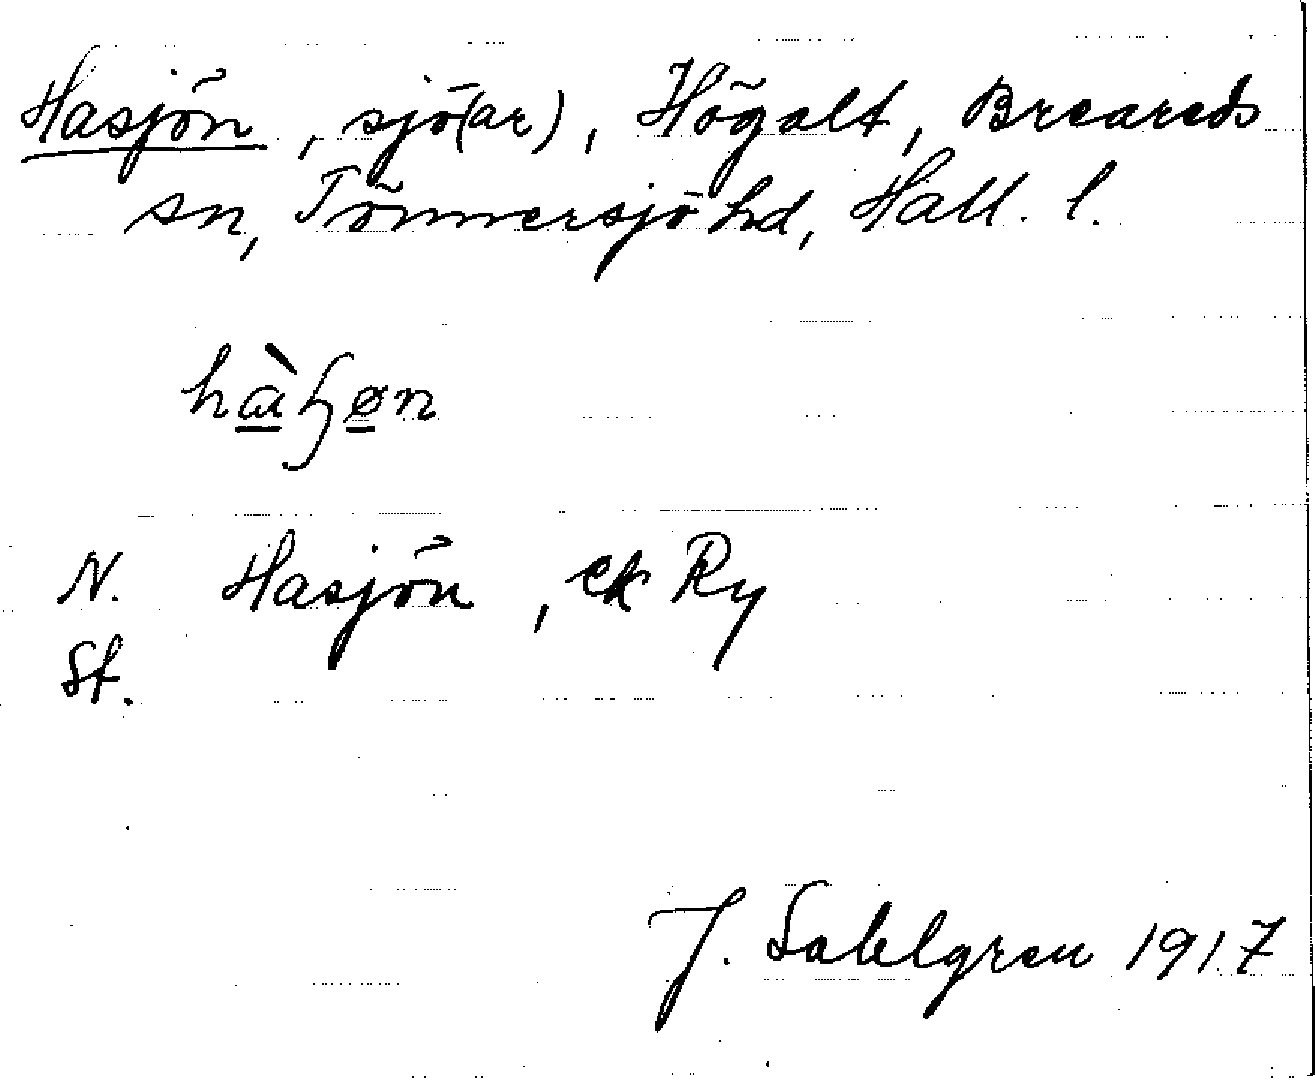 Hasjön, sjö(ar), Högalt, Breareds
sn, Tönnersjö hd, Hall. l.
hàɧøn
N. Hasjön, ek Ry
St.
J. Sahlgren 1917